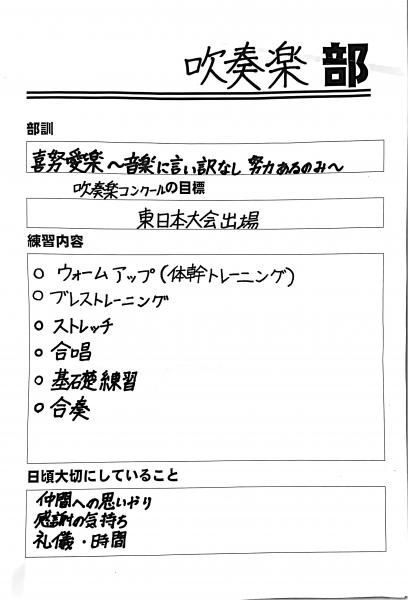 吹奏楽部
部訓
喜努愛楽～音楽に言い訳なし 努力あるのみ～
吹奏楽コンクールの目標
東日本大会出場
練習内容
○ ウォームアップ(体幹トレーニング)
○ ブレストレーニング
○ ストレッチ
○ 合唱
○ 基礎練習
○ 合奏
日頃大切にしていること
仲間への思いやり
感謝の気持ち
礼儀・時間